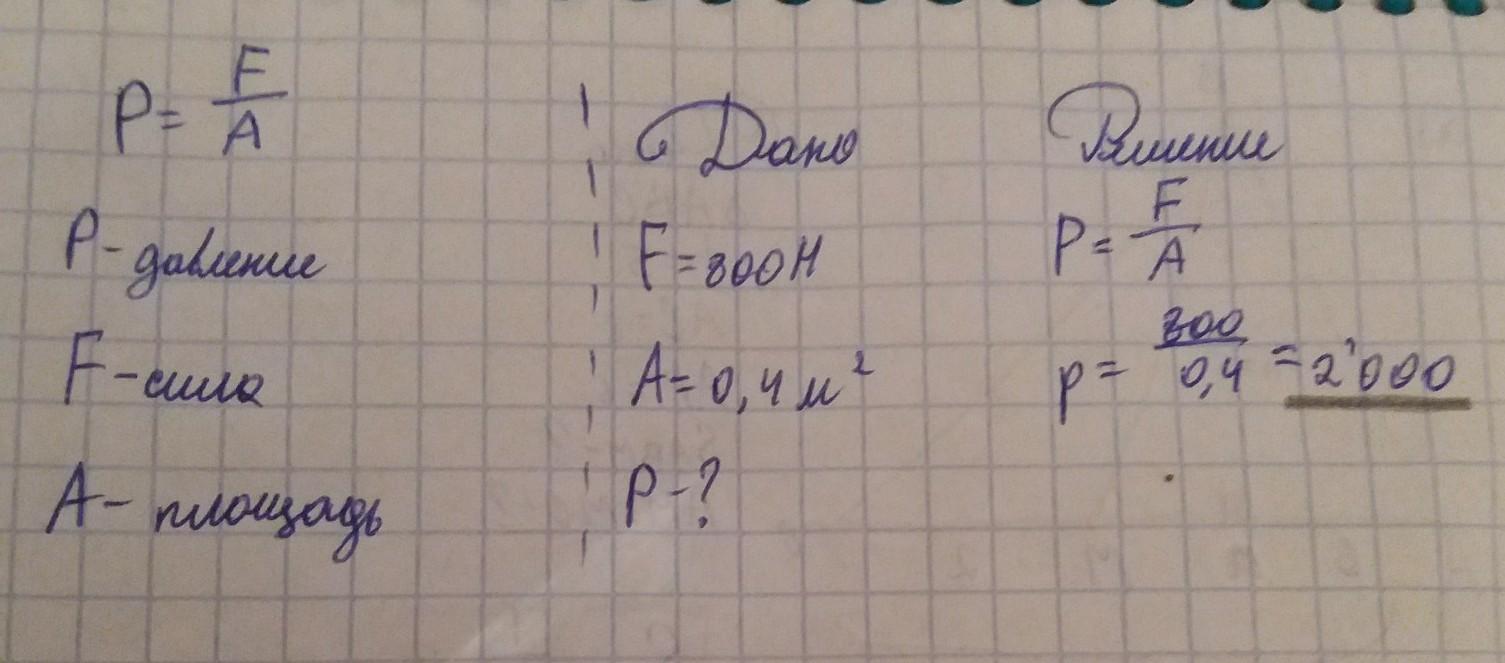 P = F/A
P - давление
F - сила
A - площадь
Дано
F = 800 Н
A = 0,4 м²
P - ?
Решение
P = F/A
p = 800/0,4 = 2'000